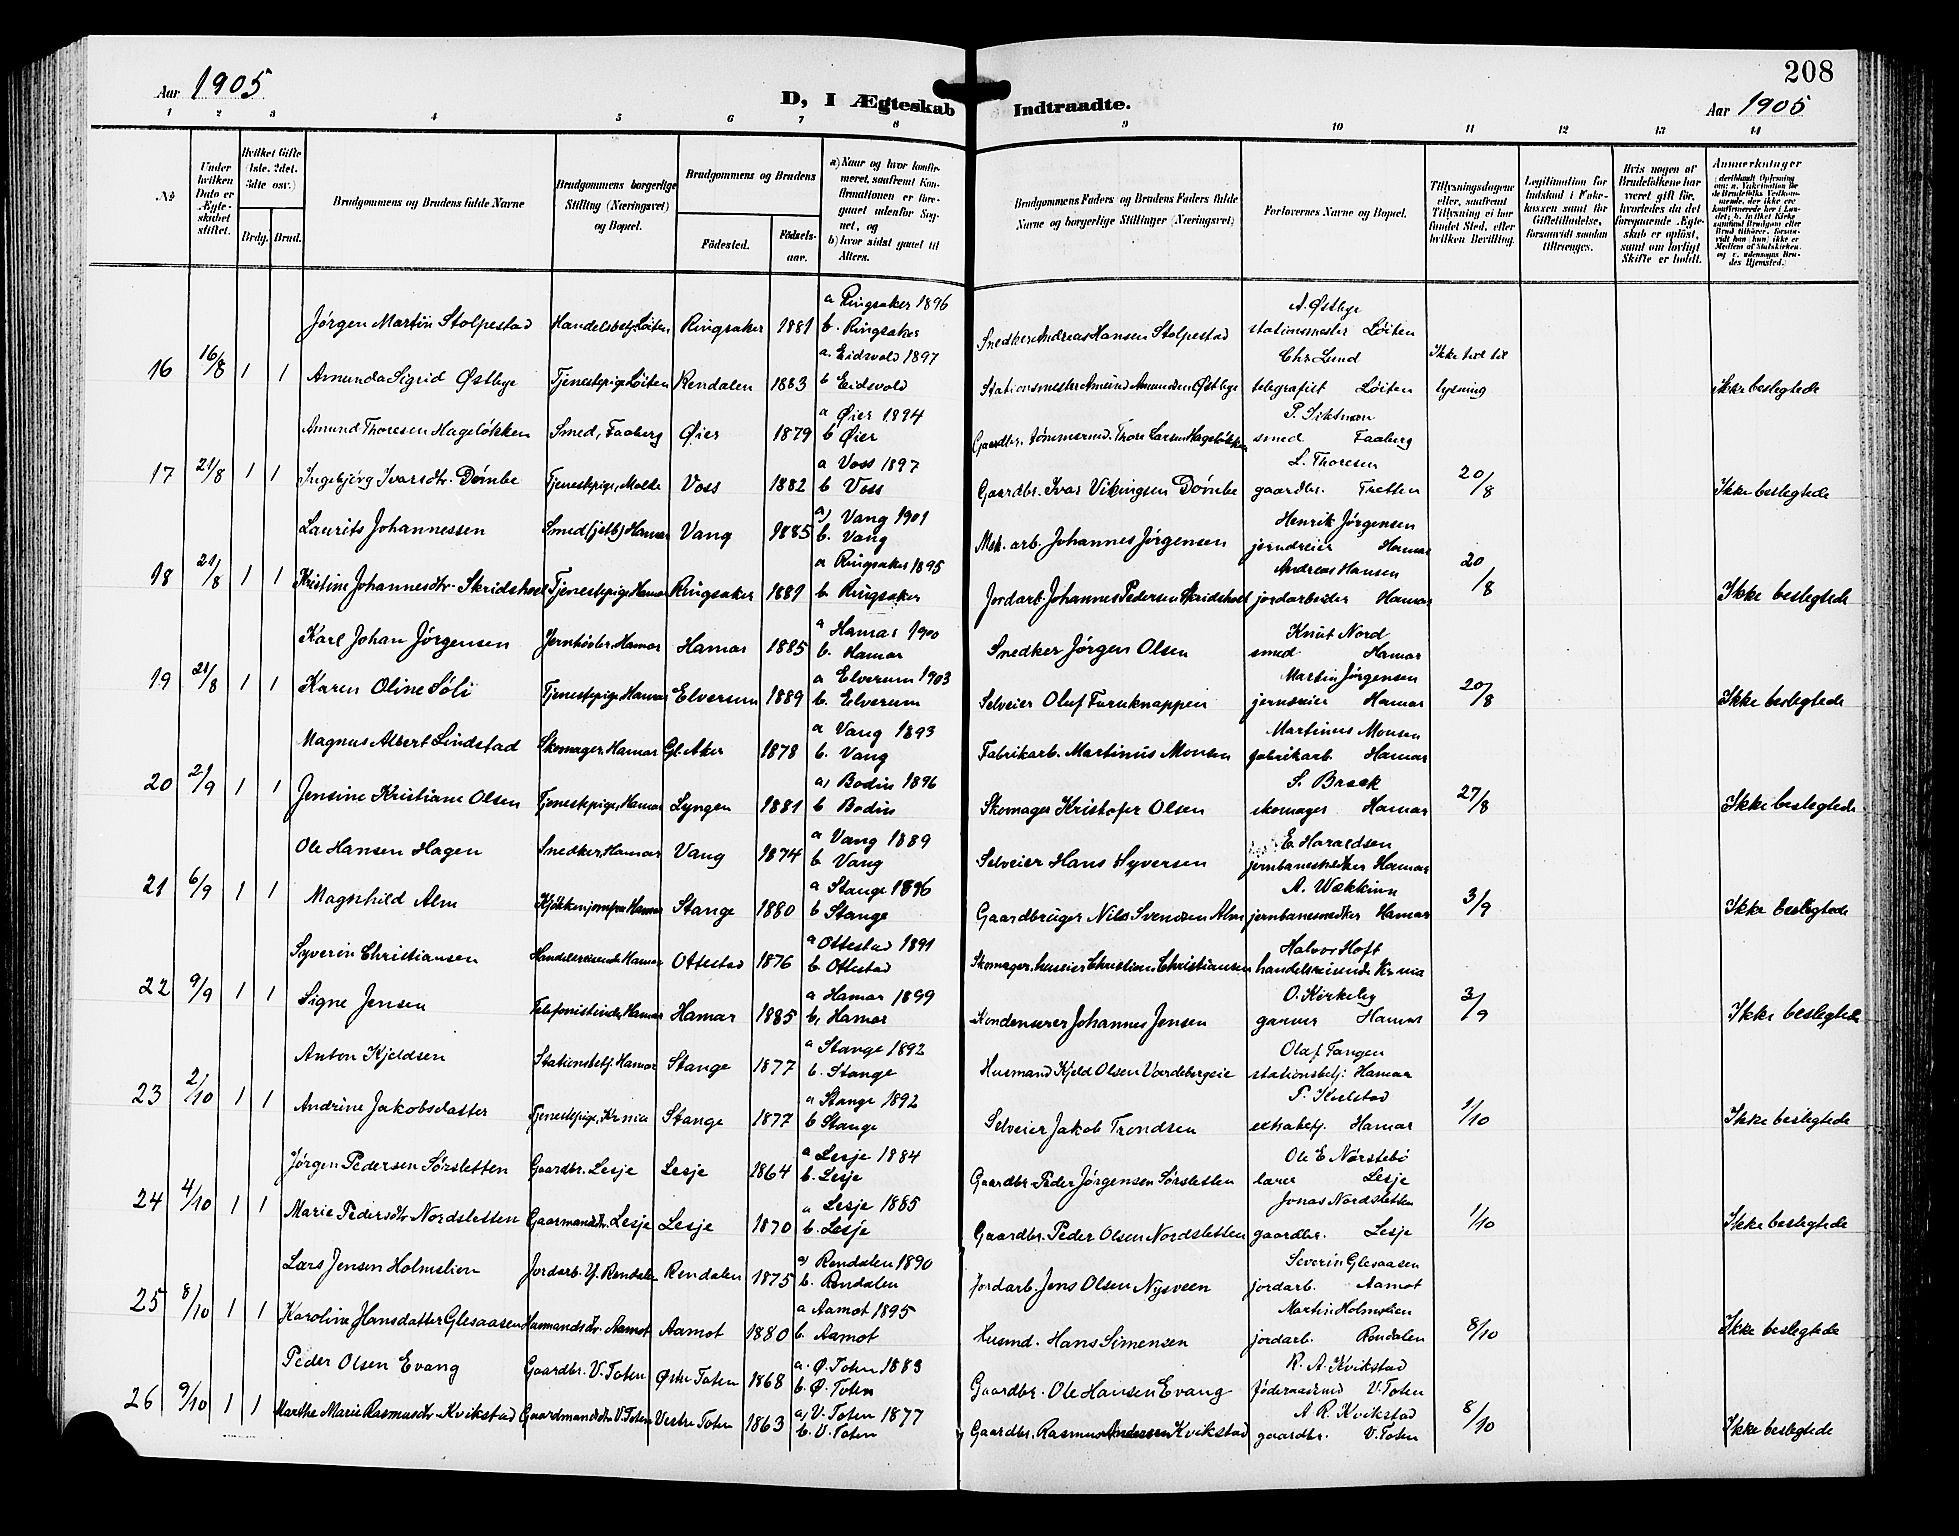 208
Aar 1905
D, I Ægteskab Indtraadte.
Aar 1905
1 2 3 4 5 6 7 8 9 10 11 12 13 14
No
Under hvilken Dato er Ægteskabet stiftet.
Hvilket Gifte (1ste, 2det, 3die osv.)
Brdg. Brud.
Brudgommens og Brudens fulde Navne
Brudgommens borgerlige Stilling (Næringsvei) og Bopæl.
Brudgommens og Brudens
Fødested.
Fødselsaar.
a) Naar og hvor konfirmeret, saafremt Konfirmationen er foregaaet udenfor Sognet, og
b) hvor sidst gaaet til Alters.
Brudgommens Faders og Brudens Faders fulde Navne og borgerlige Stillinger (Næringsvei)
Forlovernes Navne og Bopæl.
Tillysningsdagene eller, saafremt Tillysning ei har fundet Sted, efter hvilken Bevilling.
Legitimation for Indskud i Enkekassen samt for Giftetilladelse, forsaavidt saadan tiltrænges.
Hvis nogen af Brudefolkene har været gift før, hvorledes da det foregaaende Ægteskab er opløst, samt om lovligt Skifte er holdt.
Anmerkninger
Jørgen Martin Stolpestad Handelsbetj Løiten Ringsaker 1881 a Ringsaker 1896 b. Ringsaker Snedker Andreas Hansen Stolpestad A. Østbye stationsmester Løiten
16 16/8 1 1 Amunda Sigrid Østbye Tjenestepige Løiten Rendalen 1883 a. Eidsvold 1897 b Eidsvold Stationsmester Amund Amundsen Østbye Chr. Lund telegrafist Løiten Ikke lyst til lysning Ikke beslegtede
Amund Thoresen Hageløkken Smed, Faaberg Øier 1879 a Øier 1894 b Øier Gaardbr. tømmermd. Thore Larsen Hageløkken smed Faaberg
17 21/8 1 1 Ingebjørg Ivarsdtr. Dømbe Tjenestepige, Molde Voss 1882 a Voss 1897 b Voss Gaardbr. Ivar Vikingsen Dømbe L. Thoresen gaardbr. Tretten 20/8 Ikke beslegtede
Laurits Johannessen Smed (jstb) Hamar Vang 1885 a) Vang 1901 b. Vang Mek. arb. Johannes Jørgensen Henrik Jørgensen jerndreier Hamar
18 21/8 1 1 Kristine Johannesdtr. Skridshoel Tjenestepige, Hamar Ringsaker 1881 a Ringsaker 1895 b. Ringsaker Jordarb. Johannes Pedersen Skridshoel Andreas Hansen jordarbeider Hamar 20/8 Ikke beslegtede
Karl Johan Jørgensen Jernhøvler, Hamar Hamar 1885 a Hamar 1900 b. Hamar Snedker Jørgen Olsen Knut Nord smed Hamar
19 21/8 1 1 Karen Oline Søli Tjenestepige, Hamar Elverum 1889 a Elverum 1903 b. Elverum Selveier Oluf Furuknappen Martin Jørgensen jerndreier Hamar 20/8 Ikke beslegtede
Magnus Albert Lindstad Skomager, Hamar Gl. Aker 1878 a Vang 1893 b. Vang Fabrikarb. Martinus Monsen Martinus Monsen fabrikarb. Hamar
20 2/9 1 1 Jensine Kristiane Olsen Tjenestepige, Hamar Lyngen 1881 a) Bodin 1896 b Bodin Skomager Kristofer Olsen S. Braek skomager Hamar 27/8 Ikke beslegtede
Ole Hansen Hagen Snedker Hamar Vang 1874 a Vang 1889 b Vang Selveier Hans Syversen E Haraldsen Hamar
21 6/9 1 1 Magnhild Alm Kjøkkenjomfru Hamar Stange 1880 a Stange 1896 b Stange Gaardbruger Nils Svendsen Alm A. Wækkinn jernbanesnedker Hamar 3/9 Ikke beslegtede
Syverin Christiansen Handelsreisende Hamar Ottestad 1876 a Ottestad 1891 b. Ottestad Skomager, huseier Christian Christiansen Halvor Hoft handelsreisende Kr.nia
22 9/9 1 1 Signe Jensen Telefonistinde, Hamar Hamar 1885 a Hamar 1899 b, Hamar Kondenserer Johannes Jensen O. Kirkeby garver Hamar 3/9 Ikke beslegtede
Anton Kjeldsen Stationsbetj. Hamar Stange 1877 a Stange 1892 b. Stange Husmand Kjeld Olsen Vordebergeie Olaf Tangen stationsbetj. Hamar
23 2/10 1 1 Andrine Jakobsdatter Tjenestepige, Kr.nia Stange 1877 a Stange 1892 b Stange Selveier Jakob Trondsen extrabetj. Hamar 1/10 Ikke beslegtede
Jørgen Pedersen Sørsletten Gaardbr. Lesje Lesje 1864 a Lesje 1884 b. Lesje Gaardbr. Peder Jørgensen Sørsletten Ole E Nørstebø lærer Lesje
24 4/10 1 1 Marie Pedersdtr Nordsletten Gaarmandsdtr, Lesje Lesje 1870 a Lesje 1885 b. Lesje Gaardbr. Peder Olsen Nordsletten Jonas Nordsletten gaardbr. Lesje 1/10 Ikke beslegtede
Lars Jensen Holmslien Jordarb. Y. Rendalen Rendalen 1875 a) Rendalen 1890 b. Rendalen Jordarb. Jens Olsen Nysveen Severin Glesaasen jordarb. Aamot
25 8/10 1 1 Karoline Hansdatter Glesaasen Husmandsdtr. Aamot Aamot 1880 a Aamot 1895 b. Aamot Husmd. Hans Simensen Martin Holmslien jordarb. Rendalen 8/10 Ikke beslegtede
Peder Olsen Evang Gaardbr. V. Toten Østre Toten 1868 a. Ø. Toten 1883 b. Ø. Toten Gaardbr. Ole Hansen Evang R. A. Kvikstad føderaadsmd V. Toten
26 9/10 1 1 Marthe Marie Rasmusdtr Kvikstad Gaardmandsdtr V. Toten Vestre Toten 1863 a) V. Toten 1877 b. V. Toten Gaardbr. Rasmus Andersen Kvikstad A. R. Kvikstad gaardbr. V. Toten 8/10 Ikke beslegtede